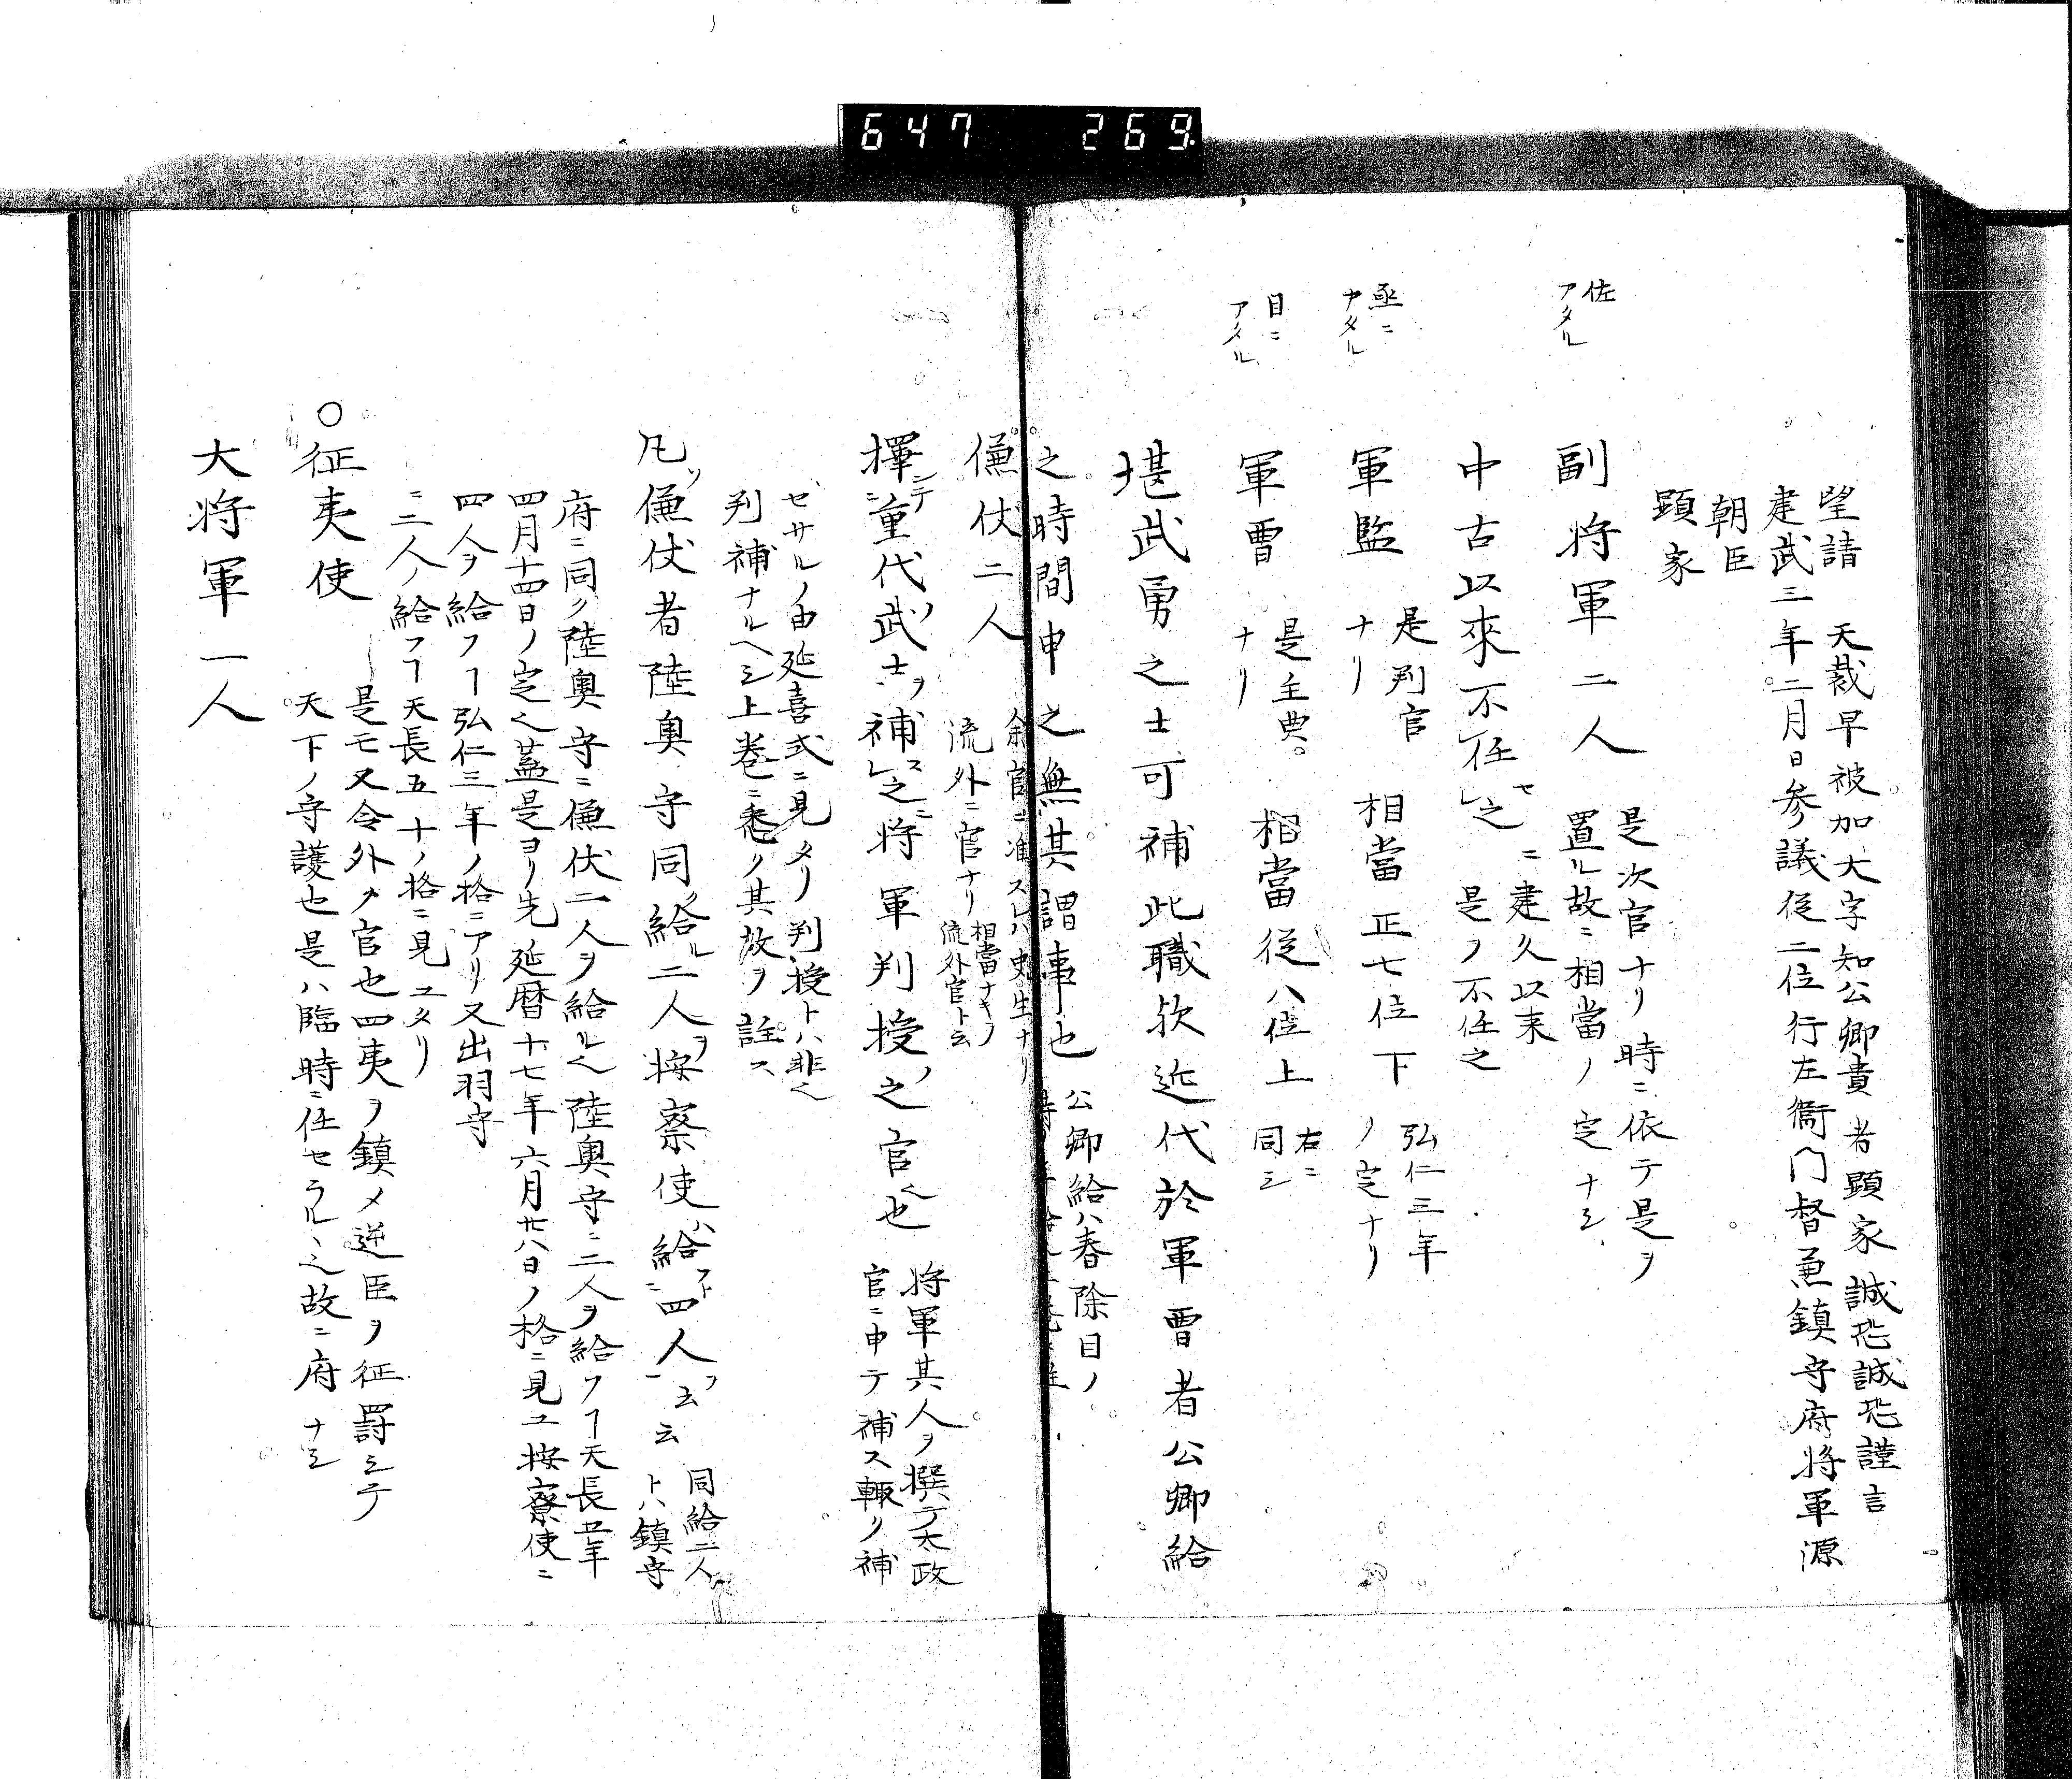 647 269
望請 天裁早被加大字知公卿貴者顕家誠恐誠恐謹言
建武三年二月日参議従二位行左衛門督兼鎮守府将軍源
朝臣
顕家
佐
アタル
副将軍二人
是次官ナリ時ニ依テ是ヲ
置ル故ニ相當ノ定ナシ
中古以來不任之
建久以来
是ヲ不任之
丞ニ
アタル
軍監
是判官
ナリ
相當正七位下
弘仁三年
ノ定ナリ
目ニ
アタル
軍曹
是主典
ナリ
相當従八位上
右ニ
同シ
堪武勇之士可補此職欤近代於軍曹者公卿給
之時間申之無其謂事也
公卿給ハ春除目ノ
傔仗二人
余官ニ准スレハ史生ナリ
流外ニ官ナリ
相當ナキヲ
流外官ト云
擇ニテ重代武ノ士ヲ補スレ之ニ将軍判授ノ之官也
将軍其人ヲ撰テ太政
官ニ申テ補ス輙ク補
セサルノ由延喜式ニ見タリ判授トハ非也
判補ナルヘシ上巻ニ悉ク其故ヲ註ス
凡ソ傔仗者陸奥守同ク給ル二人ヲ按察使ハ給フト四人ヲ云云
同給二人
トハ鎮守
府ニ同ク陸奥守ニ傔仗二人ヲ給ル也陸奥守ニ二人ヲ給フヿ天長五年
四月十四日ノ定也蓋是ヨリ先延暦十七年六月廿八日ノ格ニ見ユ按察使ニ
四人ヲ給フヿ弘仁三年ノ格ニアリ又出羽守
ニ二人ノ給フヿ天長五十ノ格ニ見ユタリ
○征夷使
是モ又令外ノ官也四夷ヲ鎮メ逆臣ヲ征罸シテ
天下ノ守護也是ハ臨時ニ任セラルヽ也故ニ府ナシ
大将軍一人